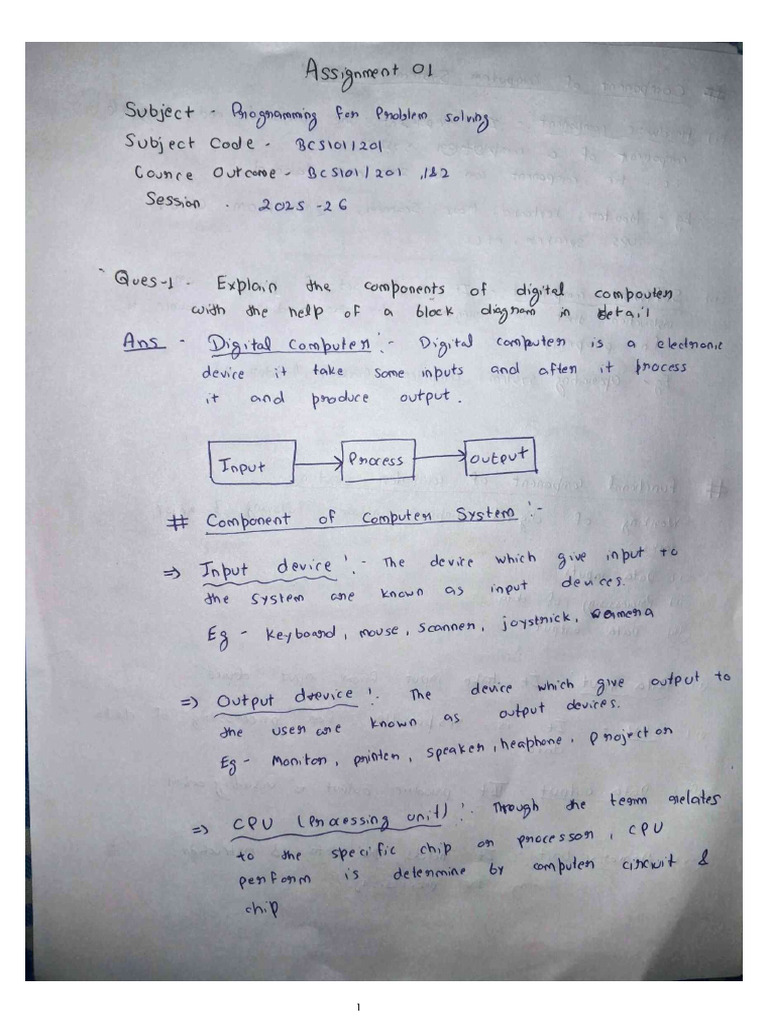 Assignment 01
Subject - Programming for Problem solving
Subject Code - BCS101/201
Cource Outcome - BCS101/201 ,1&2
Session . 2025-26
Ques-1 - Explain the components of digital compouter
with the help of a block diagram in detail
Ans - Digital Computer :- Digital computer is a electronic
device it take some inputs and after it process
it and produce output.
Input Process output
# Component of Computer System :-
⇒ Input device :- The device which give input to
the system are known as input devices.
Eg - keyboard, mouse, scanner, joystrick, camera
⇒ Output drevice :. The device which give output to
the user are known as output devices.
Eg - Moniter, printer, speaker, heaphone, projector
⇒ CPU (Processing unit) :. Through the term relates
to the specific chip or processor, CPU
perform is determine by computer circuit &
chip
1